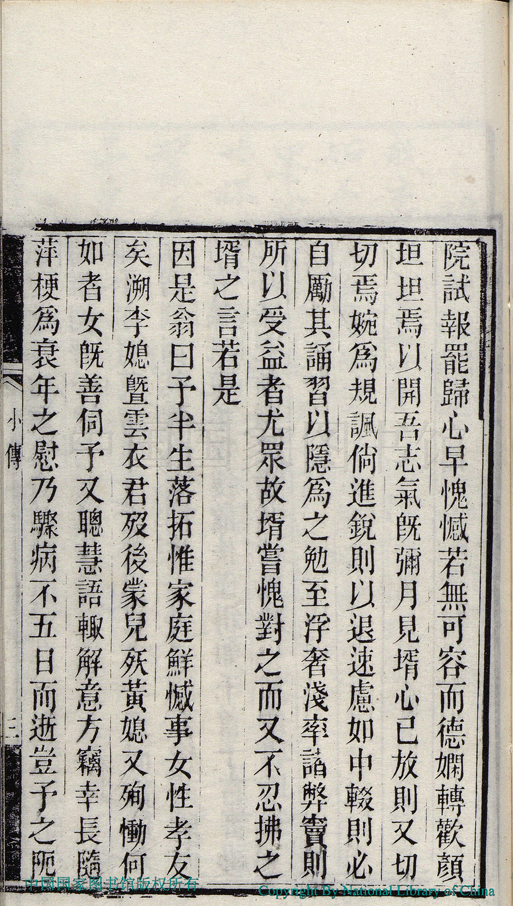 院試報罷歸心早愧憾若無可容而德嫻轉歡顔
坦坦焉以開吾志氣旣彌月見壻心已放則又切
切焉婉爲規諷倘進銳則以退速慮如中輟則必
自勵其誦習以隱爲之勉至浮奢淺率諸弊竇則
所以受益者尤眾故壻嘗愧對之而又不忍拂之
壻之言若是
因是翁曰予半生落拓惟家庭鮮憾事女性孝友
矣溯李媳暨雲衣君歿後蒙兒殀黃媳又殉慟何
如者女旣善伺予又聰慧語輙解意方竊幸長隨
萍梗爲衰年之慰乃驟病不五日而逝豈予之阨
小傳
三
中国国家图书馆版权所有
Copyright By National Library of China